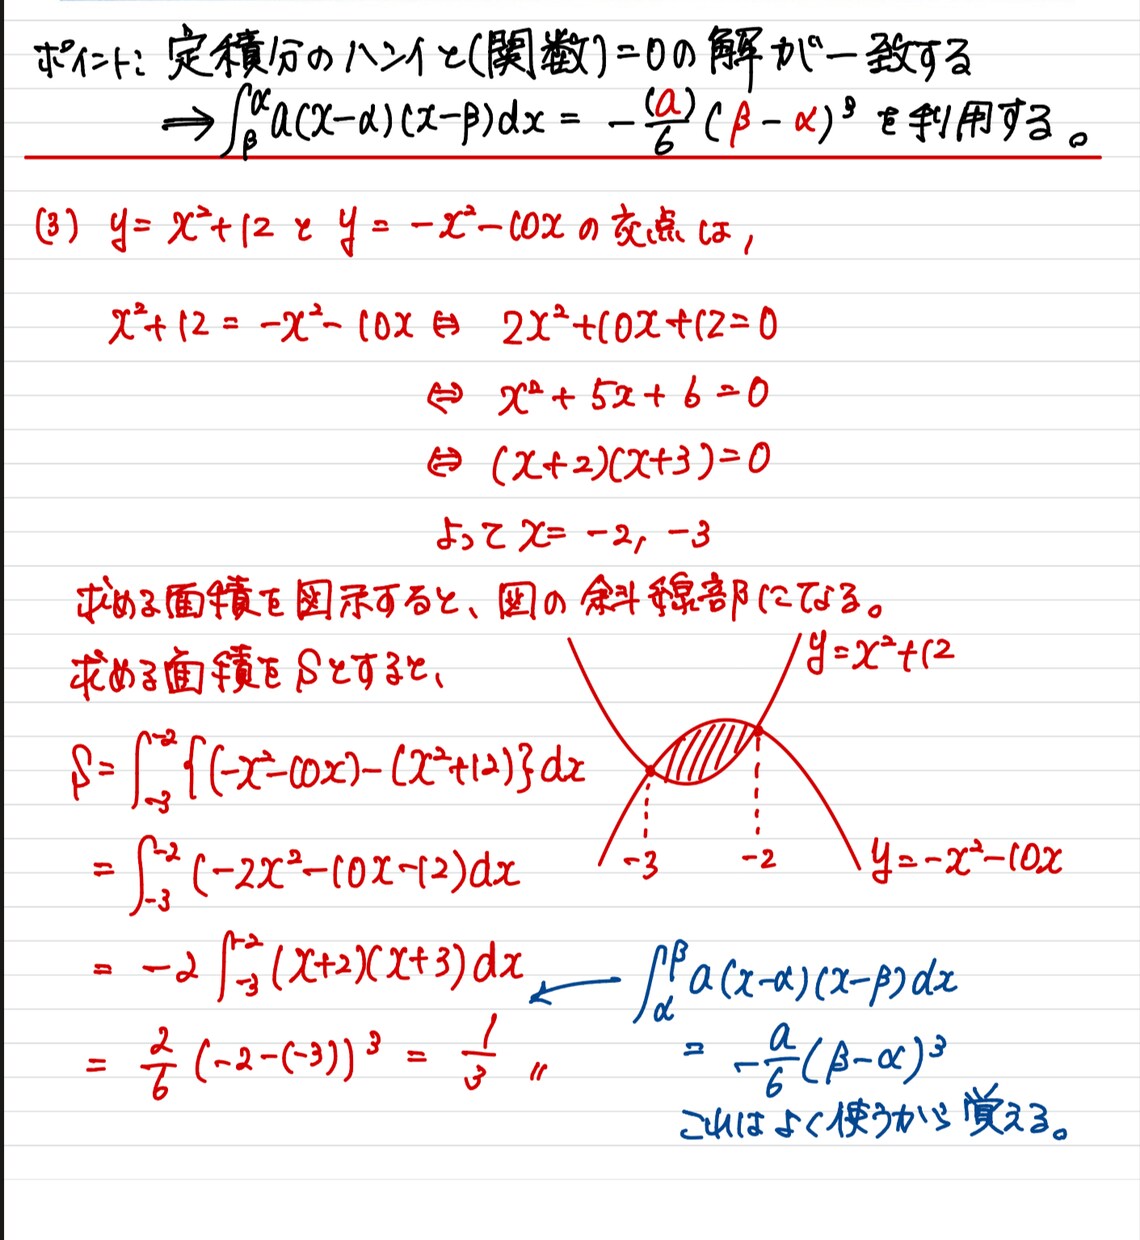 ポイント: 定積分のハンイと(関数)=0の解が一致する
⇒ ∫_β^α a(x-α)(x-β)dx = -(a)/6 (β-α)³ を利用する。
(3) y = x²+12 と y = -x²-10x の交点は,
x²+12 = -x²-10x ⇔ 2x²+10x+12=0
⇔ x²+5x+6=0
⇔ (x+2)(x+3)=0
よって x= -2, -3
求める面積を図示すると、図の斜線部になる。
求める面積をSとすると、
y=x²+12
S=∫_{-3}^{-2} {(-x²-10x)-(x²+12)}dx
-3 -2
y=-x²-10x
= ∫_{-3}^{-2} (-2x²-10x-12)dx
= -2∫_{-3}^{-2} (x+2)(x+3)dx
= 2/6 (-2-(-3))³ = 1/3 〃
∫_α^β a(x-α)(x-β)dx
= -a/6 (β-α)³
これはよく使うから覚える。